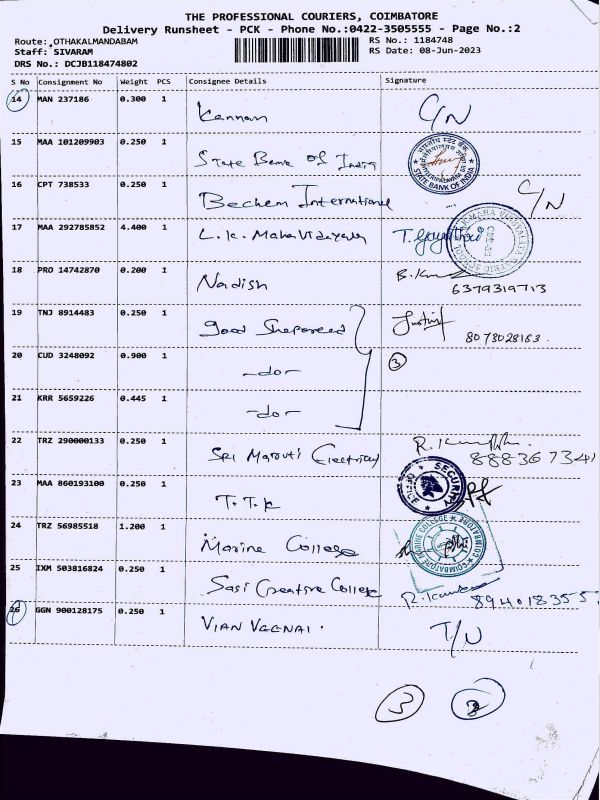 THE PROFESSIONAL COURIERS, COIMBATORE
Delivery Runsheet - PCK - Phone No.:0422-3505555 - Page No.:2
Route: OTHAKALMANDABAM RS No.: 1184748
Staff: SIVARAM RS Date: 08-Jun-2023
DRS No.: DCJB118474802
S No Consignment No Weight PCS Consignee Details Signature
14 MAN 237186 0.300 1 Kannan C/N
15 MAA 101209903 0.250 1 State Bank of India STATE BANK OF INDIA
16 CPT 738533 0.250 1 Bechem International C/N
17 MAA 292785852 4.400 1 L.K. Maha Vidyalaya
18 PRO 14742870 0.200 1 Nadish 6379319713
19 TNJ 8914483 0.250 1 Good Sheporeed 8073028163.
20 CUD 3248092 0.900 1 -do- 3
21 KRR 5659226 0.445 1 -do-
22 TRZ 290000133 0.250 1 Sri Maruti Electrical
23 MAA 860193100 0.250 1 T.T.K SECURITY
24 TRZ 56985518 1.200 1 Marine College COIMBATORE MARINE COLLEGE
25 IXM 503816824 0.250 1 Sasi Creative College
26 GGN 900128175 0.250 1 VIAN VEENAI. T/N
3 2